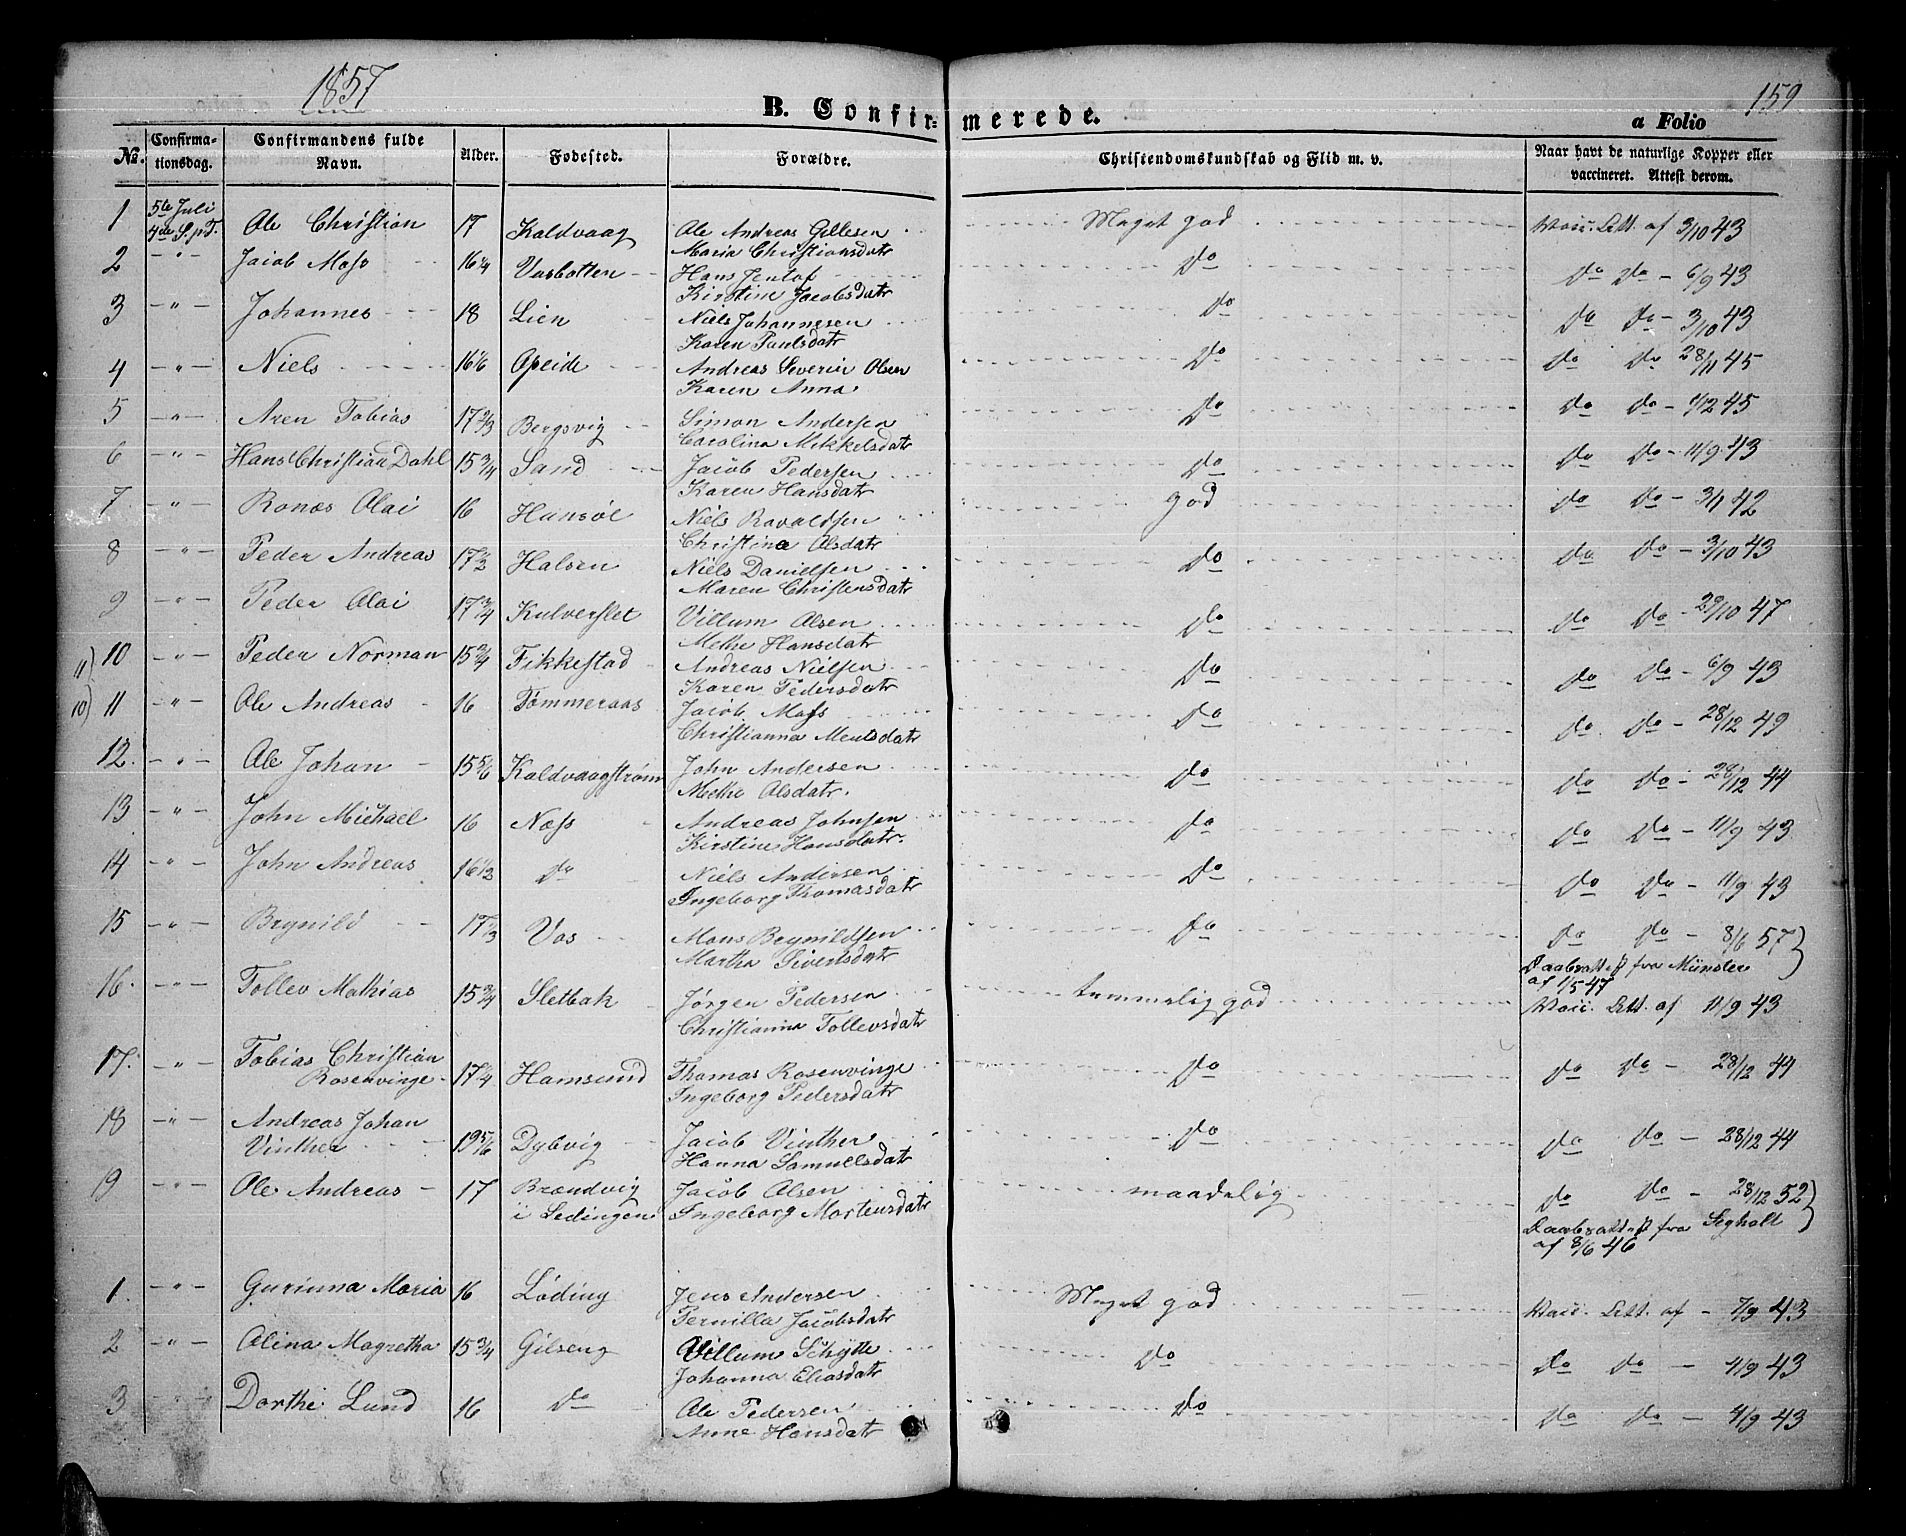 1857
159
B. Confirmerede.
a Folio
No. Confirmationsdag. Confirmandens fulde Navn. Alder. Fødested. Forældre. Christendomskundskab og Flid m. v. Naar havt de naturlige Kopper eller vaccineret. Attest derom.
1 5te Juli 4de S.p.T. Ole Christian 17 Kaldvaag Ole Andreas Gillesen Meget god Vacc. Att. af 3/10 43
Maria Christiansdatr
2 -"- Jacob Moss 16 1/4 Vasbotten Hans Jentof do do do - 6/9 43
Kirstine Jacobsdatr
3 -"- Johannes 18 Lien Niels Johannesen do do do - 3/10 43
Karen Paulsdatr
4 -"- Niels 16 1/6 Opeide Andreas Severin Olsen do do do 28/11 45
Karen Anna
5 -"- Aren Tobias 17 2/3 Bergsvig Simon Andersen do do do - 1/12 45
Carolina Mikkelsdatr
6 -"- Hans Christian Dahl 15 3/4 Sand Jacob Pedersen do do do - 11/9 43
Karen Hansdatr
7 -"- Ronæs Olai 16 Hansøl Niels Ravaldsen god do do - 3/11 42
Christine Olsdatr
8 -"- Peder Andreas 17 1/2 Halsen Niels Danielsen do do do - 3/10 43
Maren Christensdatr
9 -"- Peder Olai 17 3/4 Kulverslet Villum Olsen do do do - 29/10 47
Methe Hansdatr
11) 10 -"- Peder Norman 15 3/4 Fikkestad Andreas Nielsen do do do - 6/9 43
Karen Pedersdatr
10) 11 -"- Ole Andreas 16 Tømmeraas Jacob Moss do do do - 28/12 49
Christianna Mentsdatr
12. -"- Ole Johan 15 5/6 Kaldvaagstrøm John Andersen do do do - 28/12 44
Methe Olsdatr.
13 -"- John Michael 16 Næss Andreas Johnsen do do do - 11/9 43
Kirstine Hansdatr.
14 -"- John Andreas 16 1/2 do Niels Andersen do do do - 11/9 43
Ingeborg Thomasdatr
15 -"- Brynild 17 1/3 Vos Mons Brynildsen do do do - 8/6 57
Martha Sivertsdatr Daabsattest fra Münster af 1/5 47
16. -"- Tollev Mathias 15 3/4 Sletbak Jørgen Pedersen temmelig god Vacc. Att. af 11/9 43
Christianna Tollevsdatr
17. -"- Tobias Christian Rosenvinge 17 1/4 Hamsund Thomas Rosenvinge do do do - 28/12 44
Ingeborg Pedersdatr
18 -"- Andreas Johan Vinther 19 5/6 Dybvig Jacob Vinther do do do - 28/12 44
Hanna Samuelsdatr
19 -"- Ole Andreas 17 Brændvig i Lødingen Jacob Olsen maadelig do do - 28/12 52
Ingeborg Mortensdatr Daabsattest fra Segholt af 8/6 46
1. -"- Gurinna Maria 16 Løding Jens Andersen Meget god Vacc. Att. af - 7/9 43
Pernilla Jacobsdatr
2 -"- Olina Magretha 15 3/4 Gilseng Villum Schytte do do do - 4/9 43
Johanna Eliasdatr
3 -"- Dorthe Lund 16 do Ole Pedersen do do do - 4/9 43
Anne Hansdatr